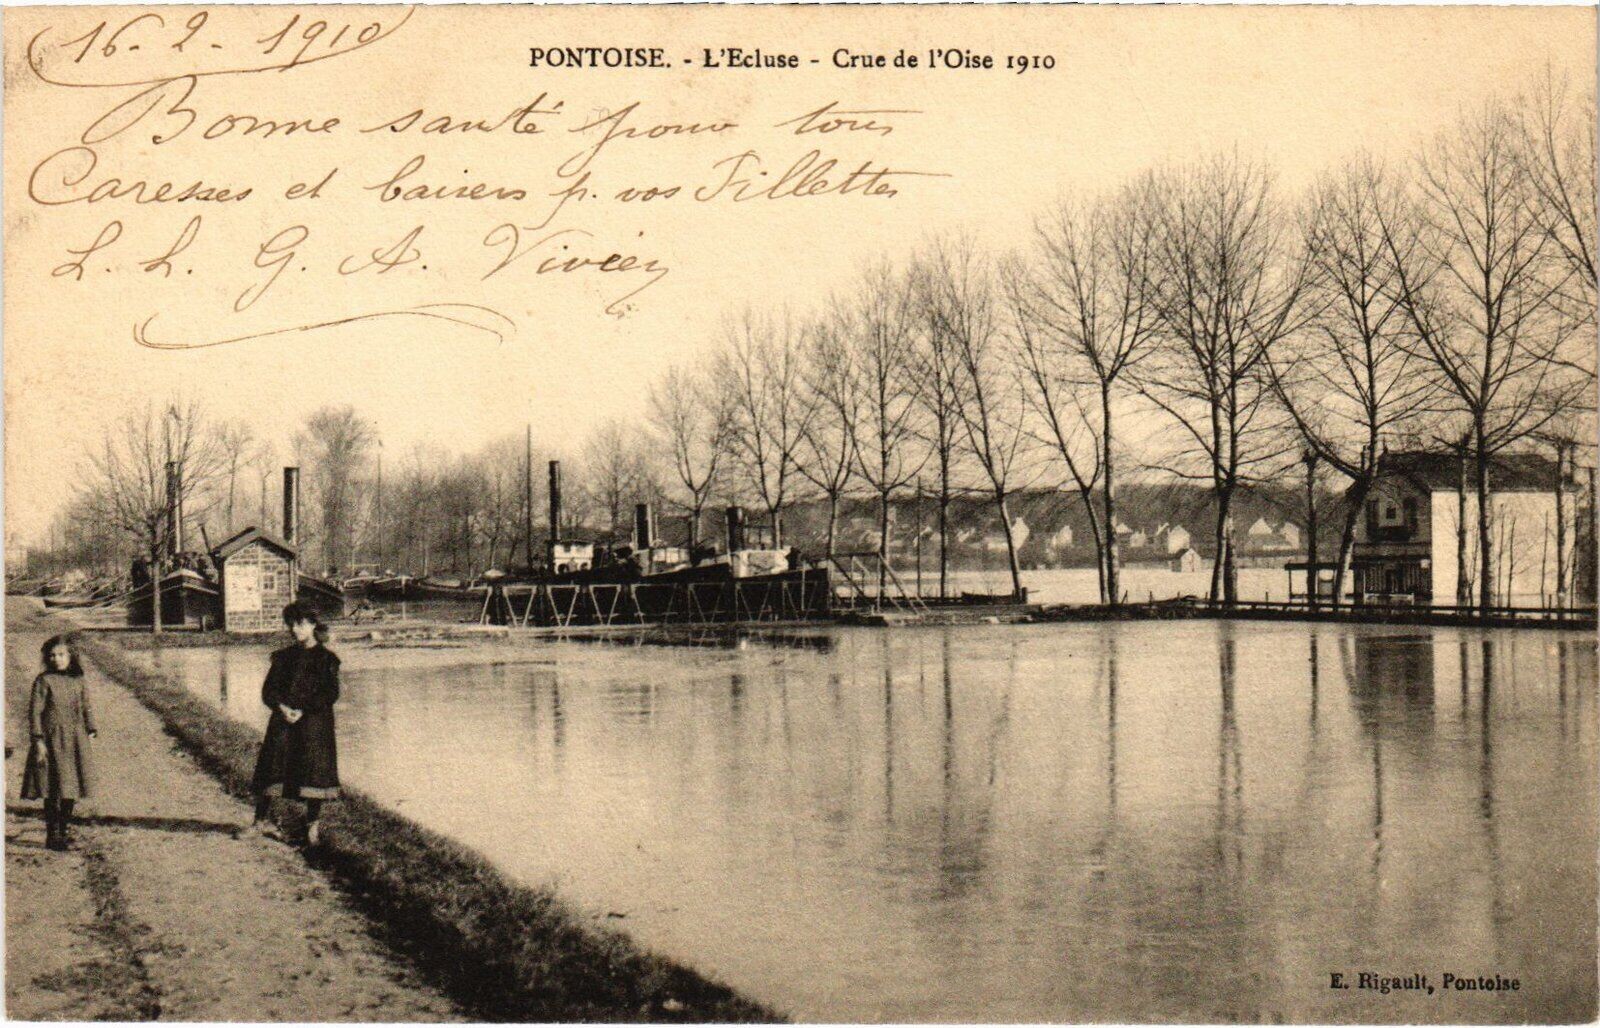 16-2-1910
PONTOISE. - L'Ecluse - Crue de l'Oise 1910
Bonne santé pour tous
Caresses et baisers p. vos Fillettes
L. L. G. A.
E. Rigault, Pontoise